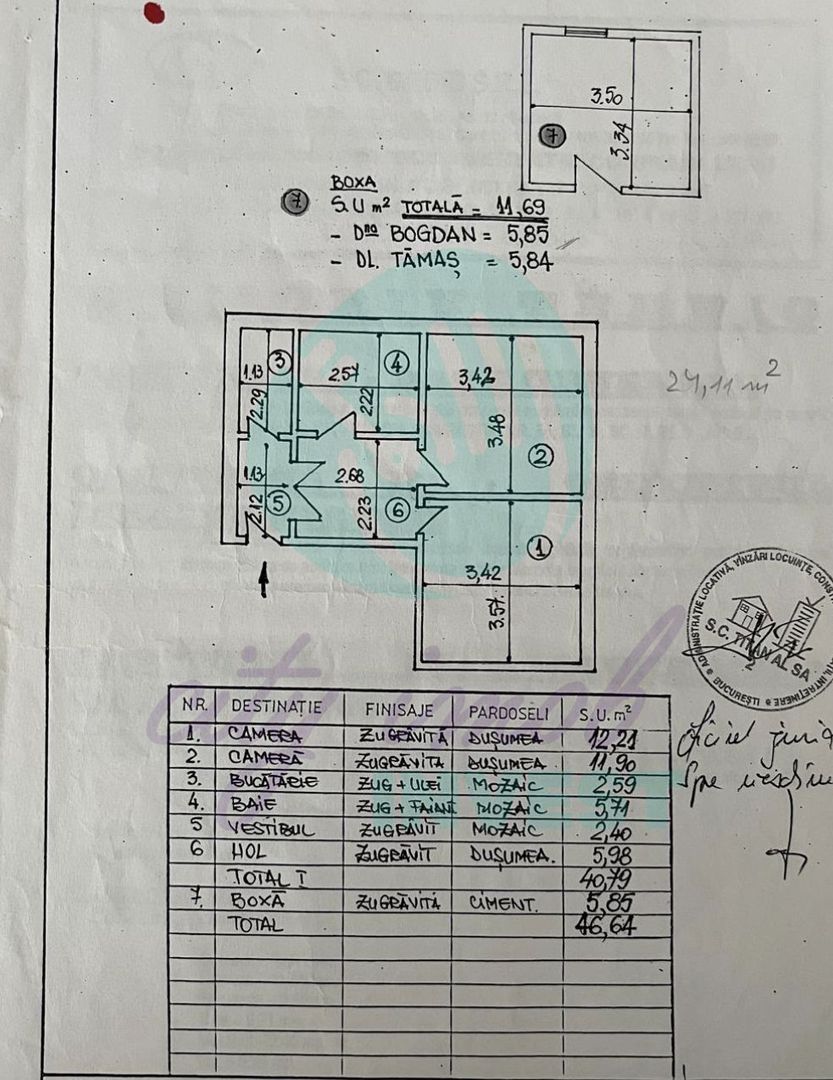 3.50
7
3.34
BOXA
7 S.U m² TOTALĂ = 11,69
- Dna BOGDAN = 5,85
- DL. TĂMAȘ = 5,84
3
4
1.13
2.57
3,42
2.29
2.22
3.48
24,11 m²
2
1.13
2.68
2.12
5
2.23
6
1
3,42
3.57
ADMINISTRAȚIE LOCATIVĂ, VÎNZĂRI LOCUINȚE,
S.C. TITAN AL SA
2
BUCUREȘTI
city imob
NR. DESTINAȚIE FINISAJE PARDOSELI S.U.m²
1. CAMERA ZUGRĂVITĂ DUȘUMEA 12,21
2. CAMERĂ ZUGRĂVITA DUȘUMEA 11,90
3. BUCĂTĂRIE ZUG + ULEI MOZAIC 2,59
4. BAIE ZUG + FAIANȚ MOZAIC 5,71
5 VESTIBUL ZUGRĂVIT MOZAIC 2,40
6 HOL ZUGRĂVIT DUȘUMEA. 5,98
TOTAL I 40,79
7. BOXĂ ZUGRĂVITĂ CIMENT. 5,85
TOTAL 46,64